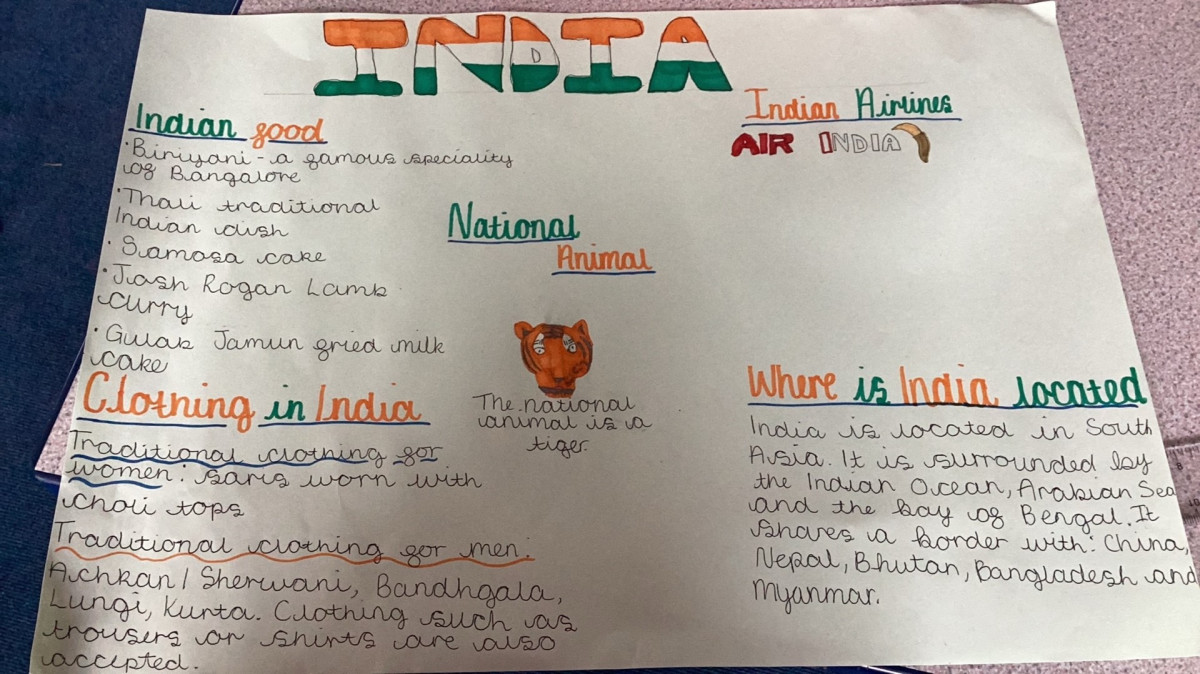 INDIA
Indian food
· Biriyani - a famous speciality
of Bangalore
· Thali traditional
Indian dish
· Samosa cake
· Josh Rogan Lamb
curry
· Gulab Jamun fried milk
cake
Clothing in India
Traditional clothing for
women: saris worn with
choli tops
Traditional clothing for men:
Achkan/Sherwani, Bandhgala,
Lungi, Kurta. Clothing such as
trousers or shirts are also
accepted.
National
Animal
The national
animal is a
tiger.
Indian Airlines
AIR INDIA
Where is India located
India is located in South
Asia. It is surrounded by
the Indian Ocean, Arabian Sea
and the bay of Bengal. It
shares a border with: China,
Nepal, Bhutan, Bangladesh and
Myanmar.